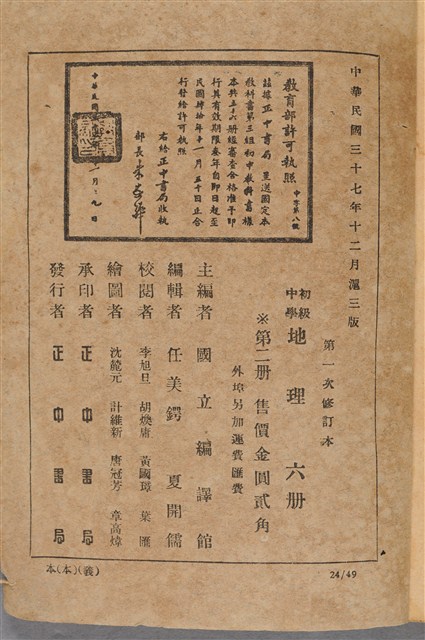 中華民國三十七年十二月滬三版
教育部許可執照
中字第八號
茲據正中書局呈送國定本
教科書第三組初中教科書樣
本共五十六册經審查合格准予印
行其有效期限叁年自卽日起至
民國肆拾年十一月三十日止合
行發給許可執照
右給正中書局收執
部長朱家驊
中華民國
一月九日
第一次修訂本
初級中學地理六册
※第二册售價金圓貳角
外埠另加運費匯費
主編者 國立編譯館
編輯者 任美鍔 夏開儒
校閱者 李旭旦 胡煥庸 黃國璋 葉匯
繪圖者 沈麓元 計維新 唐冠芳 章高煒
承印者 正中書局
發行者 正中書局
24/49
本(本)(義)